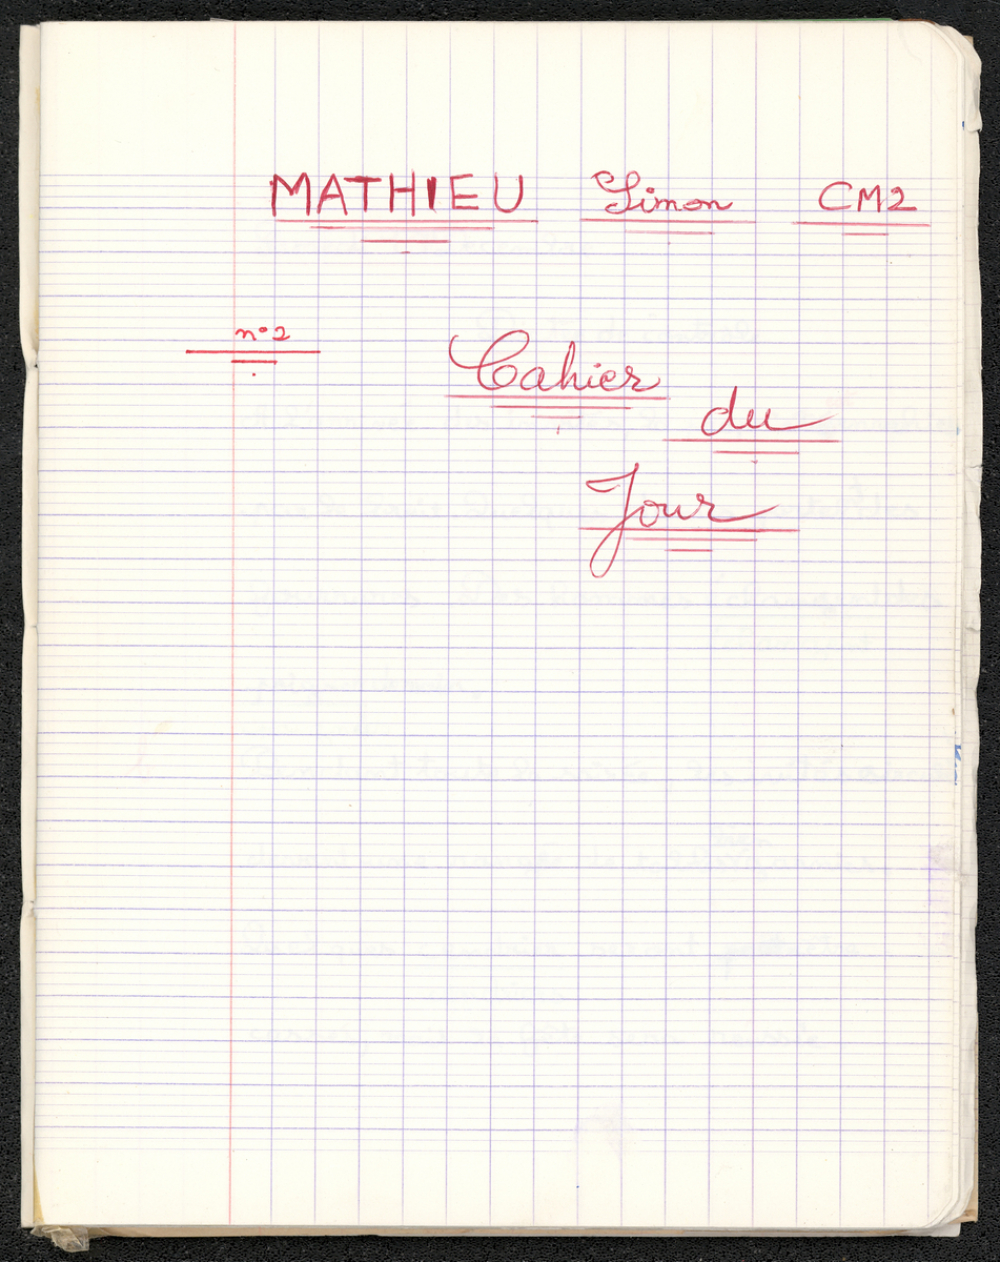 MATHIEU Simon CM2
n°2
Cahier
du
Jour